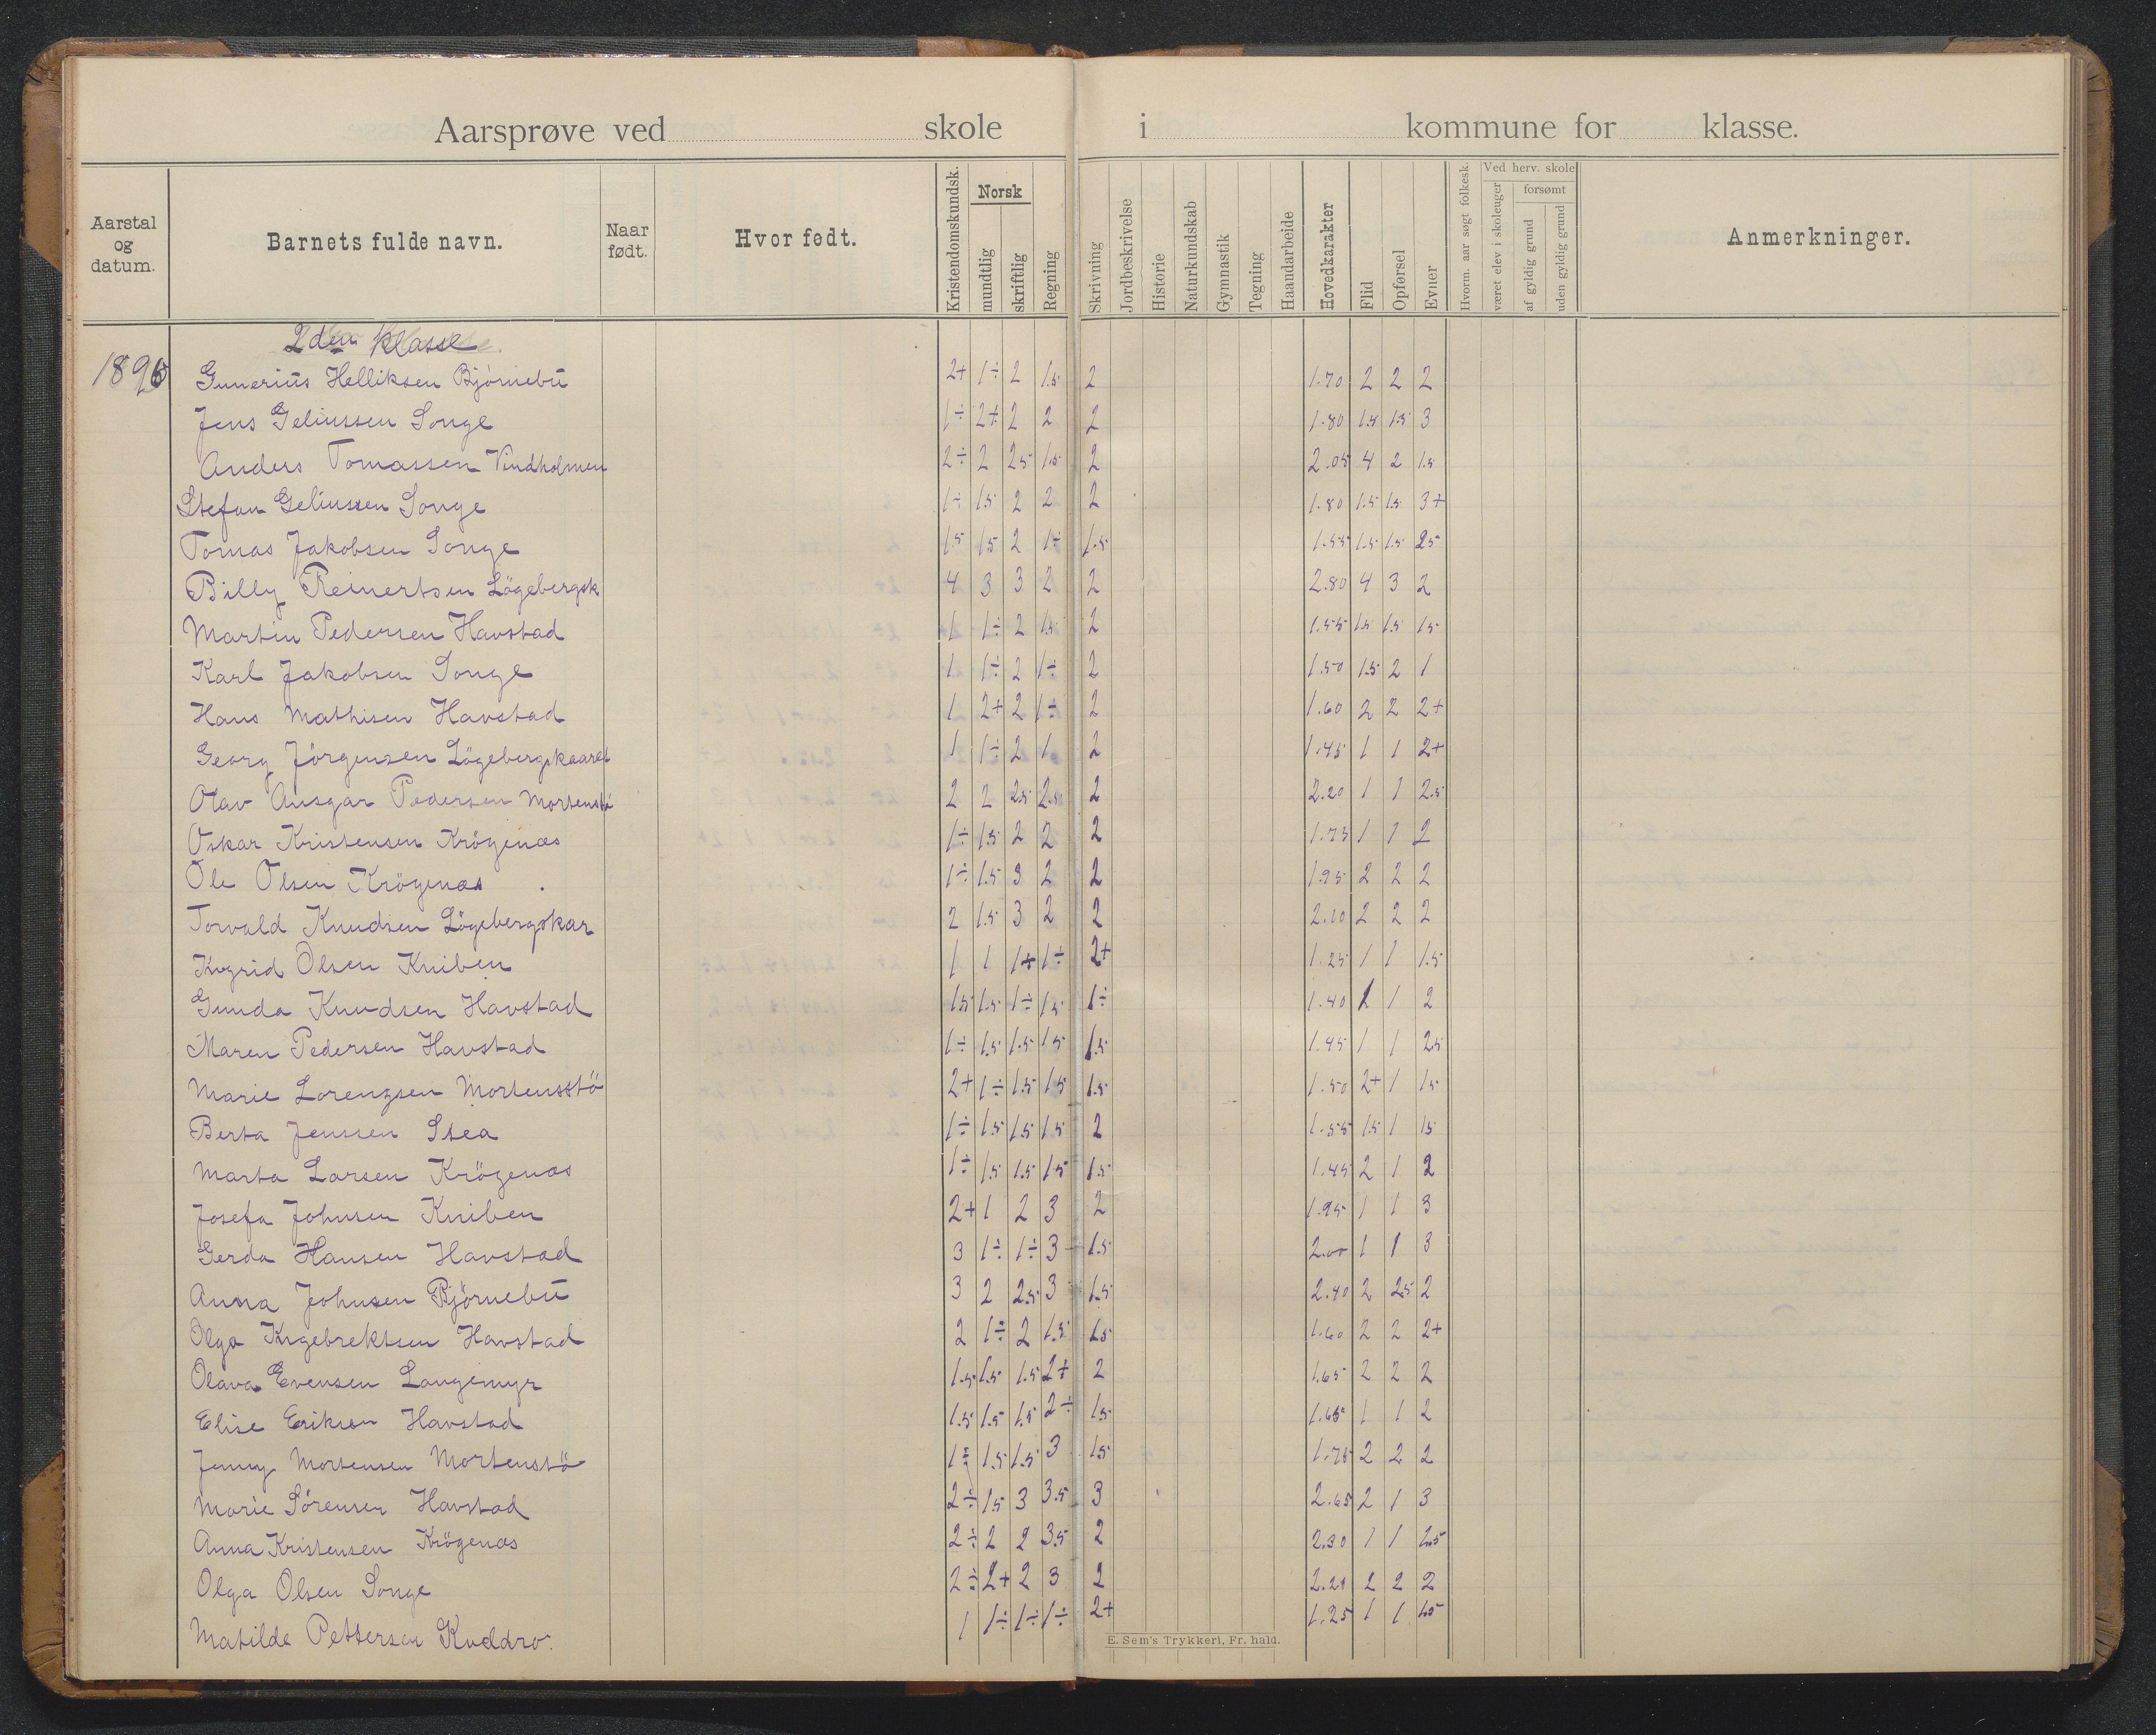 Aarsprøve ved skole i kommune for klasse.
Aarstal og datum.
Barnets fulde navn.
Naar født.
Hvor født.
Kristendomskundsk.
Norsk
mundtlig
skriftlig
Regning
Skrivning
Jordbeskrivelse
Historie
Naturkundskab
Gymnastik
Tegning
Haandarbeide
Hovedkarakter
Flid
Opførsel
Evner
Hvorm. aar søgt folkesk.
Ved herv. skole
været elev i skoleuger
forsømt
af gyldig grund
uden gyldig grund
Anmerkninger.
2den Klasse
1896 Gunerius Helliksen Bjørnebu 2+ 1÷ 2 1.5 2 1.70 2 2 2
Jens Geliussen Songe 1÷ 2+ 2 2 2 1.80 1.5 1.5 3
Anders Tomassen Vindholmen 2÷ 2 2.5 1.5 2 2.05 4 2 1.5
Stefan Geliussen Songe 1÷ 1.5 2 2 2 1.80 1.5 1.5 3+
Tomas Jakobsen Songe 1.5 1.5 2 1÷ 1.5 1.55 1.5 1.5 2.5
Billy Reinertsen Lögebergsk 4 3 3 2 2 2.80 4 3 2
Martin Pedersen Havstad 1 1÷ 2 1.5 2 1.55 1.5 1.5 1.5
Karl Jakobsen Songe 1 1÷ 2 1÷ 2 1.50 1.5 2 1
Hans Mathisen Havstad 1 2+ 2 1÷ 2 1.60 2 2 2+
Georg Jörgensen Lögebergskaaret 1 1÷ 2 1 2 1.45 1 1 2+
Olav Ansgar Pedersen Mortenstö 2 2 2.5 2.5 2 2.20 1 1 2.5
Oskar Kristensen Krögenæs 1÷ 1.5 2 2 2 1.75 1 1 2
Ole Olsen Krögenæs 1÷ 1.5 3 2 2 1.95 2 2 2
Torvald Knudsen Lögebergskar 2 1.5 3 2 2 2.10 2 2 2
Ingrid Olsen Kniben 1 1 1+ 1÷ 2+ 1.25 1 1 1.5
Gunda Knudsen Havstad 1.5 1.5 1÷ 1.5 1÷ 1.40 1 1 2
Maren Pedersen Havstad 1÷ 1.5 1.5 1.5 1.5 1.45 1 1 2.5
Marie Lorenzsen Mortensstö 2+ 1÷ 1.5 1.5 1.5 1.50 2+ 1 1.5
Berta Jenssen Stea 1÷ 1.5 1.5 1.5 2 1.55 1.5 1 1.5
Marta Larsen Krögenæs 1÷ 1.5 1.5 1.5 1.5 1.45 2 1 2
Josefa Johnsen Kniben 2+ 1 2 3 2 1.95 1 1 3
Gerda Hansen Havstad 3 1÷ 1÷ 3 1.5 2.00 1 1 3
Anna Johnsen Björnebu 3 2 2.5 3 1.5 2.40 2 2.5 2
Olga Ingebrektsen Havstad 2 1÷ 2 1.5 1.5 1.60 2 2 2+
Olava Evensen Langemyr 1.5 1.5 1.5 2+ 2 1.65 2 2 2
Elise Eriksen Havstad 1.5 1.5 1.5 2÷ 1.5 1.65 1 1 2
Jenny Mortensen Mortenstö 1÷ 1.5 1.5 3 1.5 1.75 2 2 2
Marie Sörensen Havstad 2÷ 1.5 3 3.5 3 2.65 2 1 3
Anna Kristensen Krögenæs 2÷ 2 2 3.5 2 2.30 1 1 2.5
Olga Olsen Songe 2÷ 2+ 2 3 2 2.20 2 2 2
Matilde Pettersen Kuddro. 1 1÷ 1÷ 1÷ 2+ 1.25 1 1 1.5
E. Sem's Trykkeri, Fr. hald.